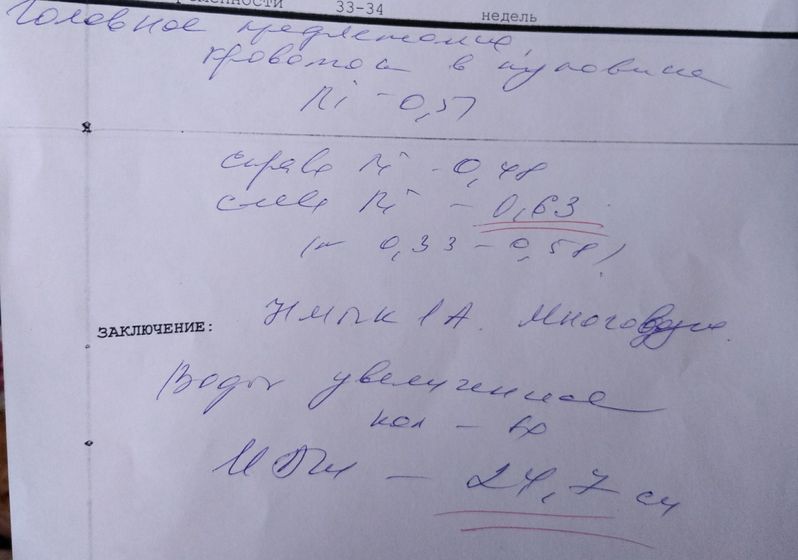 ременности 33-34 недель
Головное предлежание,
кровоток в пуповине
Ri - 0,57
справа Ri - 0,48
слева Ri - 0,63
(N 0,33 - 0,58)
ЗАКЛЮЧЕНИЕ: НМПК 1А. Многоводие
Воды увеличенное
кол - во
ИАЖ - 24,7 см